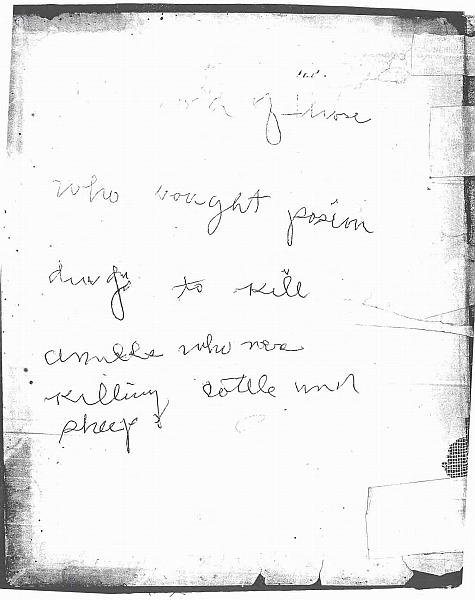 of those
who bought posion
drugs to kill
who were
killing cattle and
sheep?